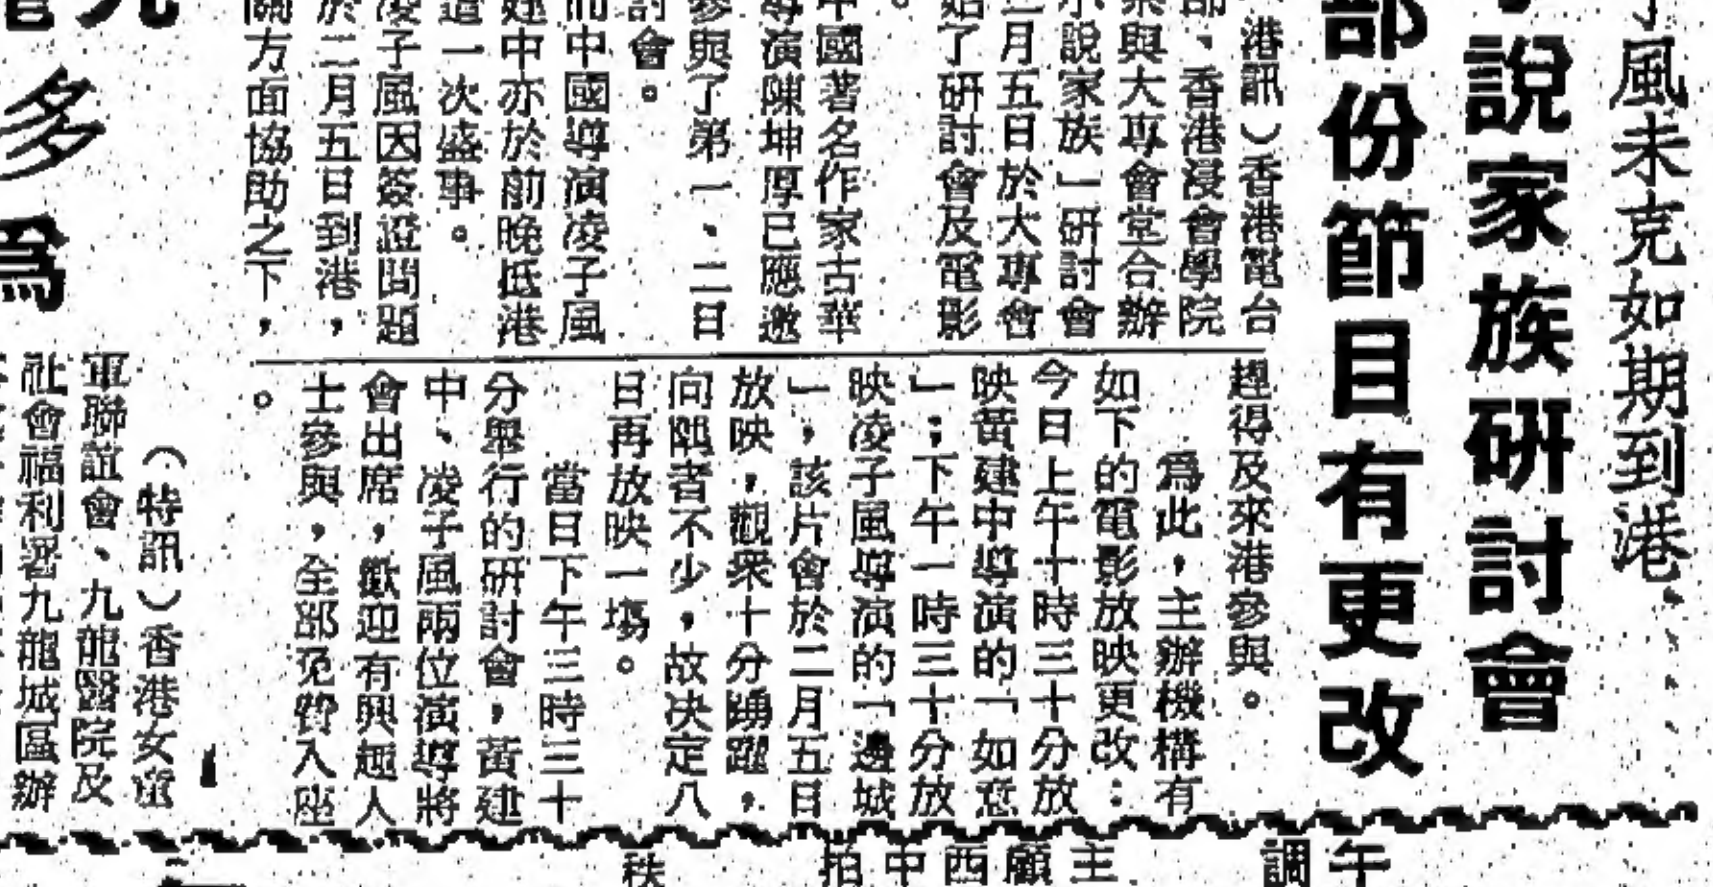 子風未克如期到港
說家族研討會
部份節目有更改
港訊）香港電台
部、香港浸會學院
與大專會堂合辦
小說家族」研討會
二月五日於大專會
始了研討會及電影
。
中國著名作家古華
導演陳坤厚已應邀
參與了第一、二日
討會。
而中國導演凌子風
建中亦於前晚抵港
這一次盛事。
凌子風因簽證問題
於二月五日到港，
關方面協助之下，
趕得及來港參與。
爲此，主辦機構有
如下的電影放映更改：
今日上午十時三十分放
映黃建中導演的「如意
」；下午一時三十分放
映凌子風導演的「邊城
」，該片會於二月五日
放映，觀衆十分踴躍，
向隅者不少，故决定八
日再放映一場。
當日下午三時三十
分舉行的研討會，黃建
中、凌子風兩位演導將
會出席，歡迎有興趣人
士參與，全部免費入座
。
多爲
（特訊）香港女童
軍聯誼會、九龍醫院及
社會福利署九龍城區辦
午
調
主顧西中拍
秩